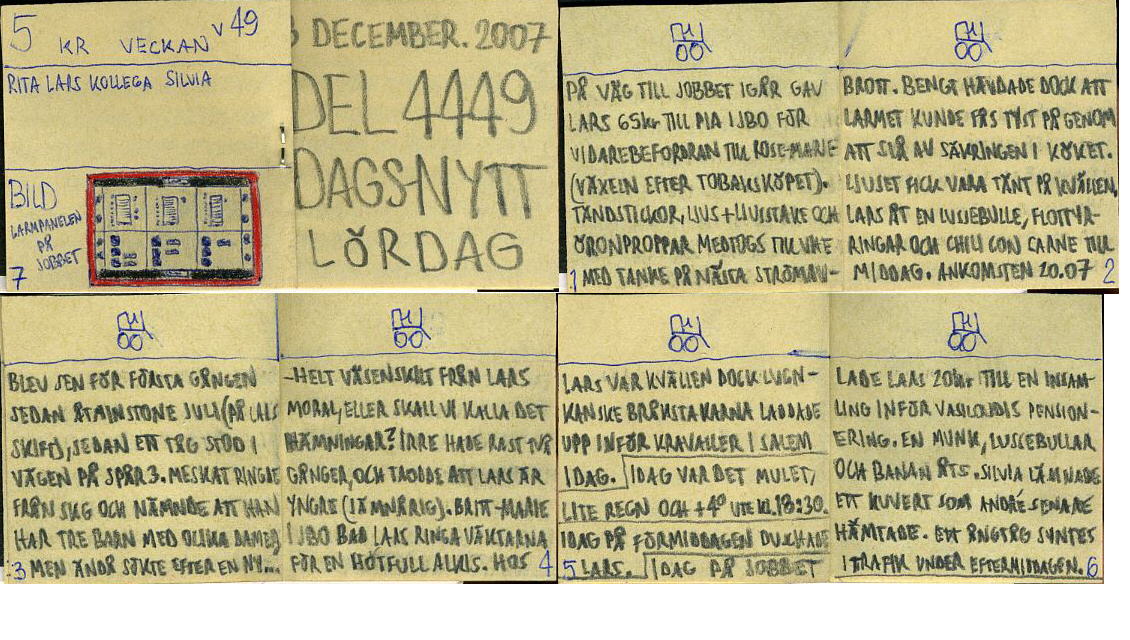 5 KR VECKAN V 49
RITA LARS KOLLEGA SILVIA
BILD
LARMPANELEN
PÅ
JOBBET
7
DECEMBER. 2007
DEL 4449
DAGSNYTT
LÖRDAG
PÅ VÄG TILL JOBBET IGÅR GAV
LARS 65kr TILL PIA I JBO FÖR
VIDAREBEFORDRAN TILL ROSE-MARIE
(VÄXELN EFTER TOBAKSKÖPET).
TÄNDSTICKOR, LJUS+LJUSSTAKE OCH
ÖRONPROPPAR MEDTOGS TILL
1 MED TANKE PÅ NÄSTA STRÖMAV-
BROTT. BENGT HÄVDADE DOCK ATT
LARMET KUNDE FÅS TYST PÅ GENOM
ATT SLÅ AV SÄKRINGEN I KÖKET.
LJUSET FICK VARA TÄNT PÅ KVÄLLEN,
LARS ÅT EN LUSSEBULLE, FLOTTYR-
RINGAR OCH CHILI CON CARNE TILL
MIDDAG. ANKOMSTEN 20.07 2
BLEV SEN FÖR FÖRSTA GÅNGEN
SEDAN ÅTMINSTONE JULI (PÅ LARS
SKIFT), SEDAN ETT TÅG STOD I
VÄGEN PÅ SPÅR 3. MESKAT RINGDE
FRÅN SKG OCH NÄMNDE ATT HAN
HAR TRE BARN MED OLIKA DAMER,
3 MEN ÄNDÅ SÖKTE EFTER EN NY...
-HELT VÄSENSKILT FRÅN LARS
MORAL, ELLER SKALL VI KALLA DET
HÄMNINGAR? IRRE HADE RAST TVÅ
GÅNGER, OCH TRODDE ATT LARS ÄR
YNGRE (JÄMNÅRIG). BRITT-MARIE
I JBO BAD LARS RINGA VÄKTARNA
FÖR EN HOTFULL ALKIS. HOS 4
LARS VAR KVÄLLEN DOCK LUGN-
KANSKE BRÅKSTAKARNA LADDADE
UPP INFÖR KRAVALLER I SALEM
IDAG. IDAG VAR DET MULET,
LITE REGN OCH +4° UTE KL.18:30.
IDAG PÅ FÖRMIDDAGEN DUSCHADE
5 LARS. IDAG PÅ JOBBET
LADE LARS 20kr TILL EN INSAM-
LING INFÖR PENSION-
ERING. EN MUNK, LUSSEBULLAR
OCH BANAN ÅTS. SILVIA LÄMNADE
ETT KUVERT SOM ANDRÉ SENARE
HÄMTADE. ETT ÅNGTÅG SYNTES
I TRAFIK UNDER EFTERMIDDAGEN. 6